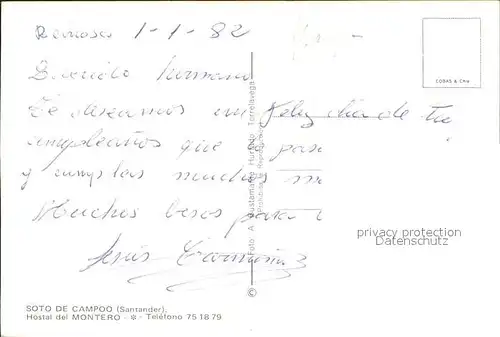 Reinosa 1-1-82
Querido hermano
Te deseamos un feliz dia de tu
cumpleaños que lo pases
y cumplas muchos
Muchos besos para
Jesús
COBAS & Cia
Foto A. Bustamante Hurtado Torrelavega
Prohibida la Reproducción
privacy protection
Datenschutz
SOTO DE CAMPOO (Santander).
Hostal del MONTERO - * - Teléfono 75 18 79
©